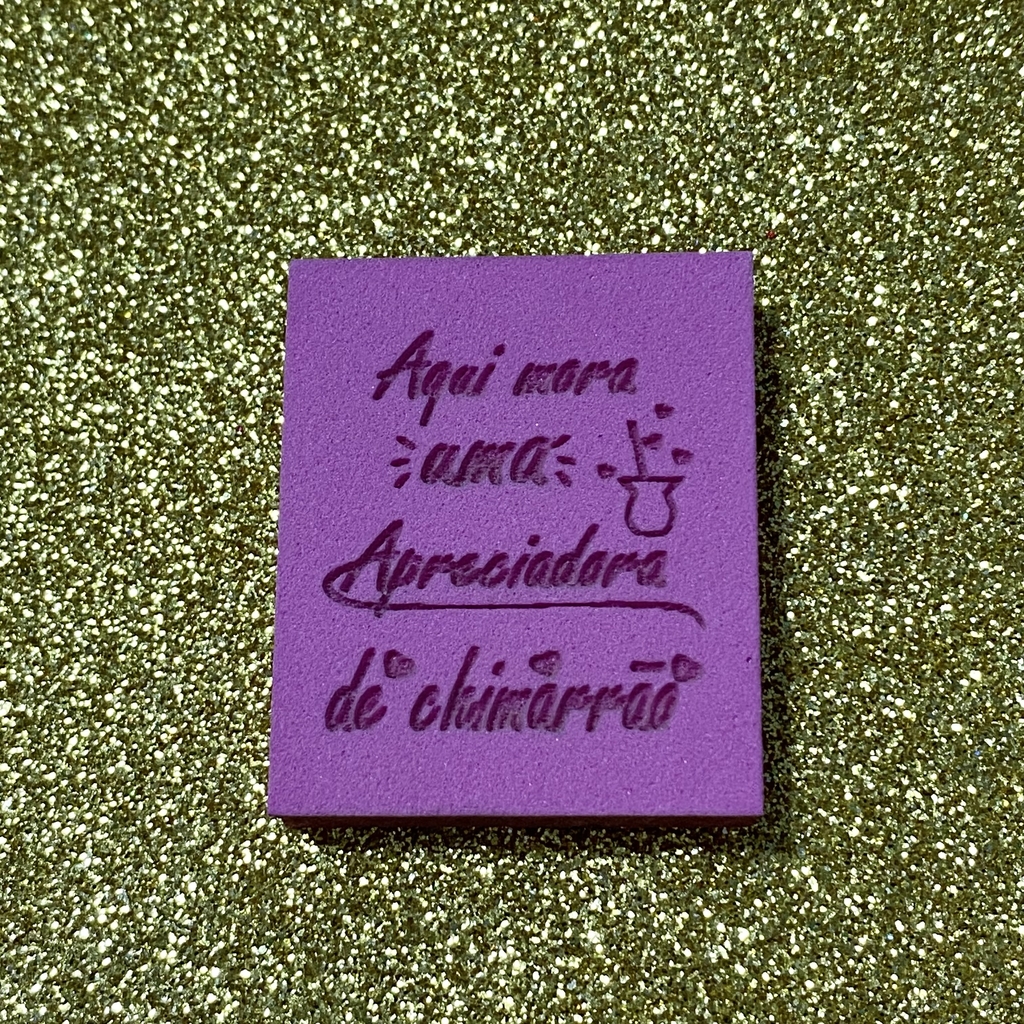 Aqui mora
uma
Apreciadora
de chimarrão